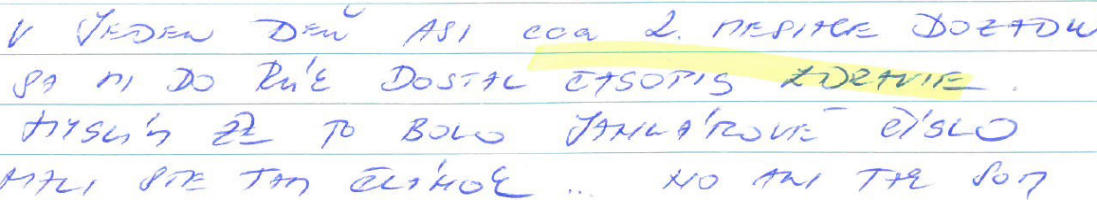 V JEDEN DEŇ ASI cca 2. MESIACE DOZADU
SA MI DO RÚK DOSTAL ČASOPIS ZDRAVIE.
MYSLÍM ŽE TO BOLO JANUÁROVÉ ČÍSLO
MALI STE TAM ČLÁNOK ... NO ANI TAK SOM